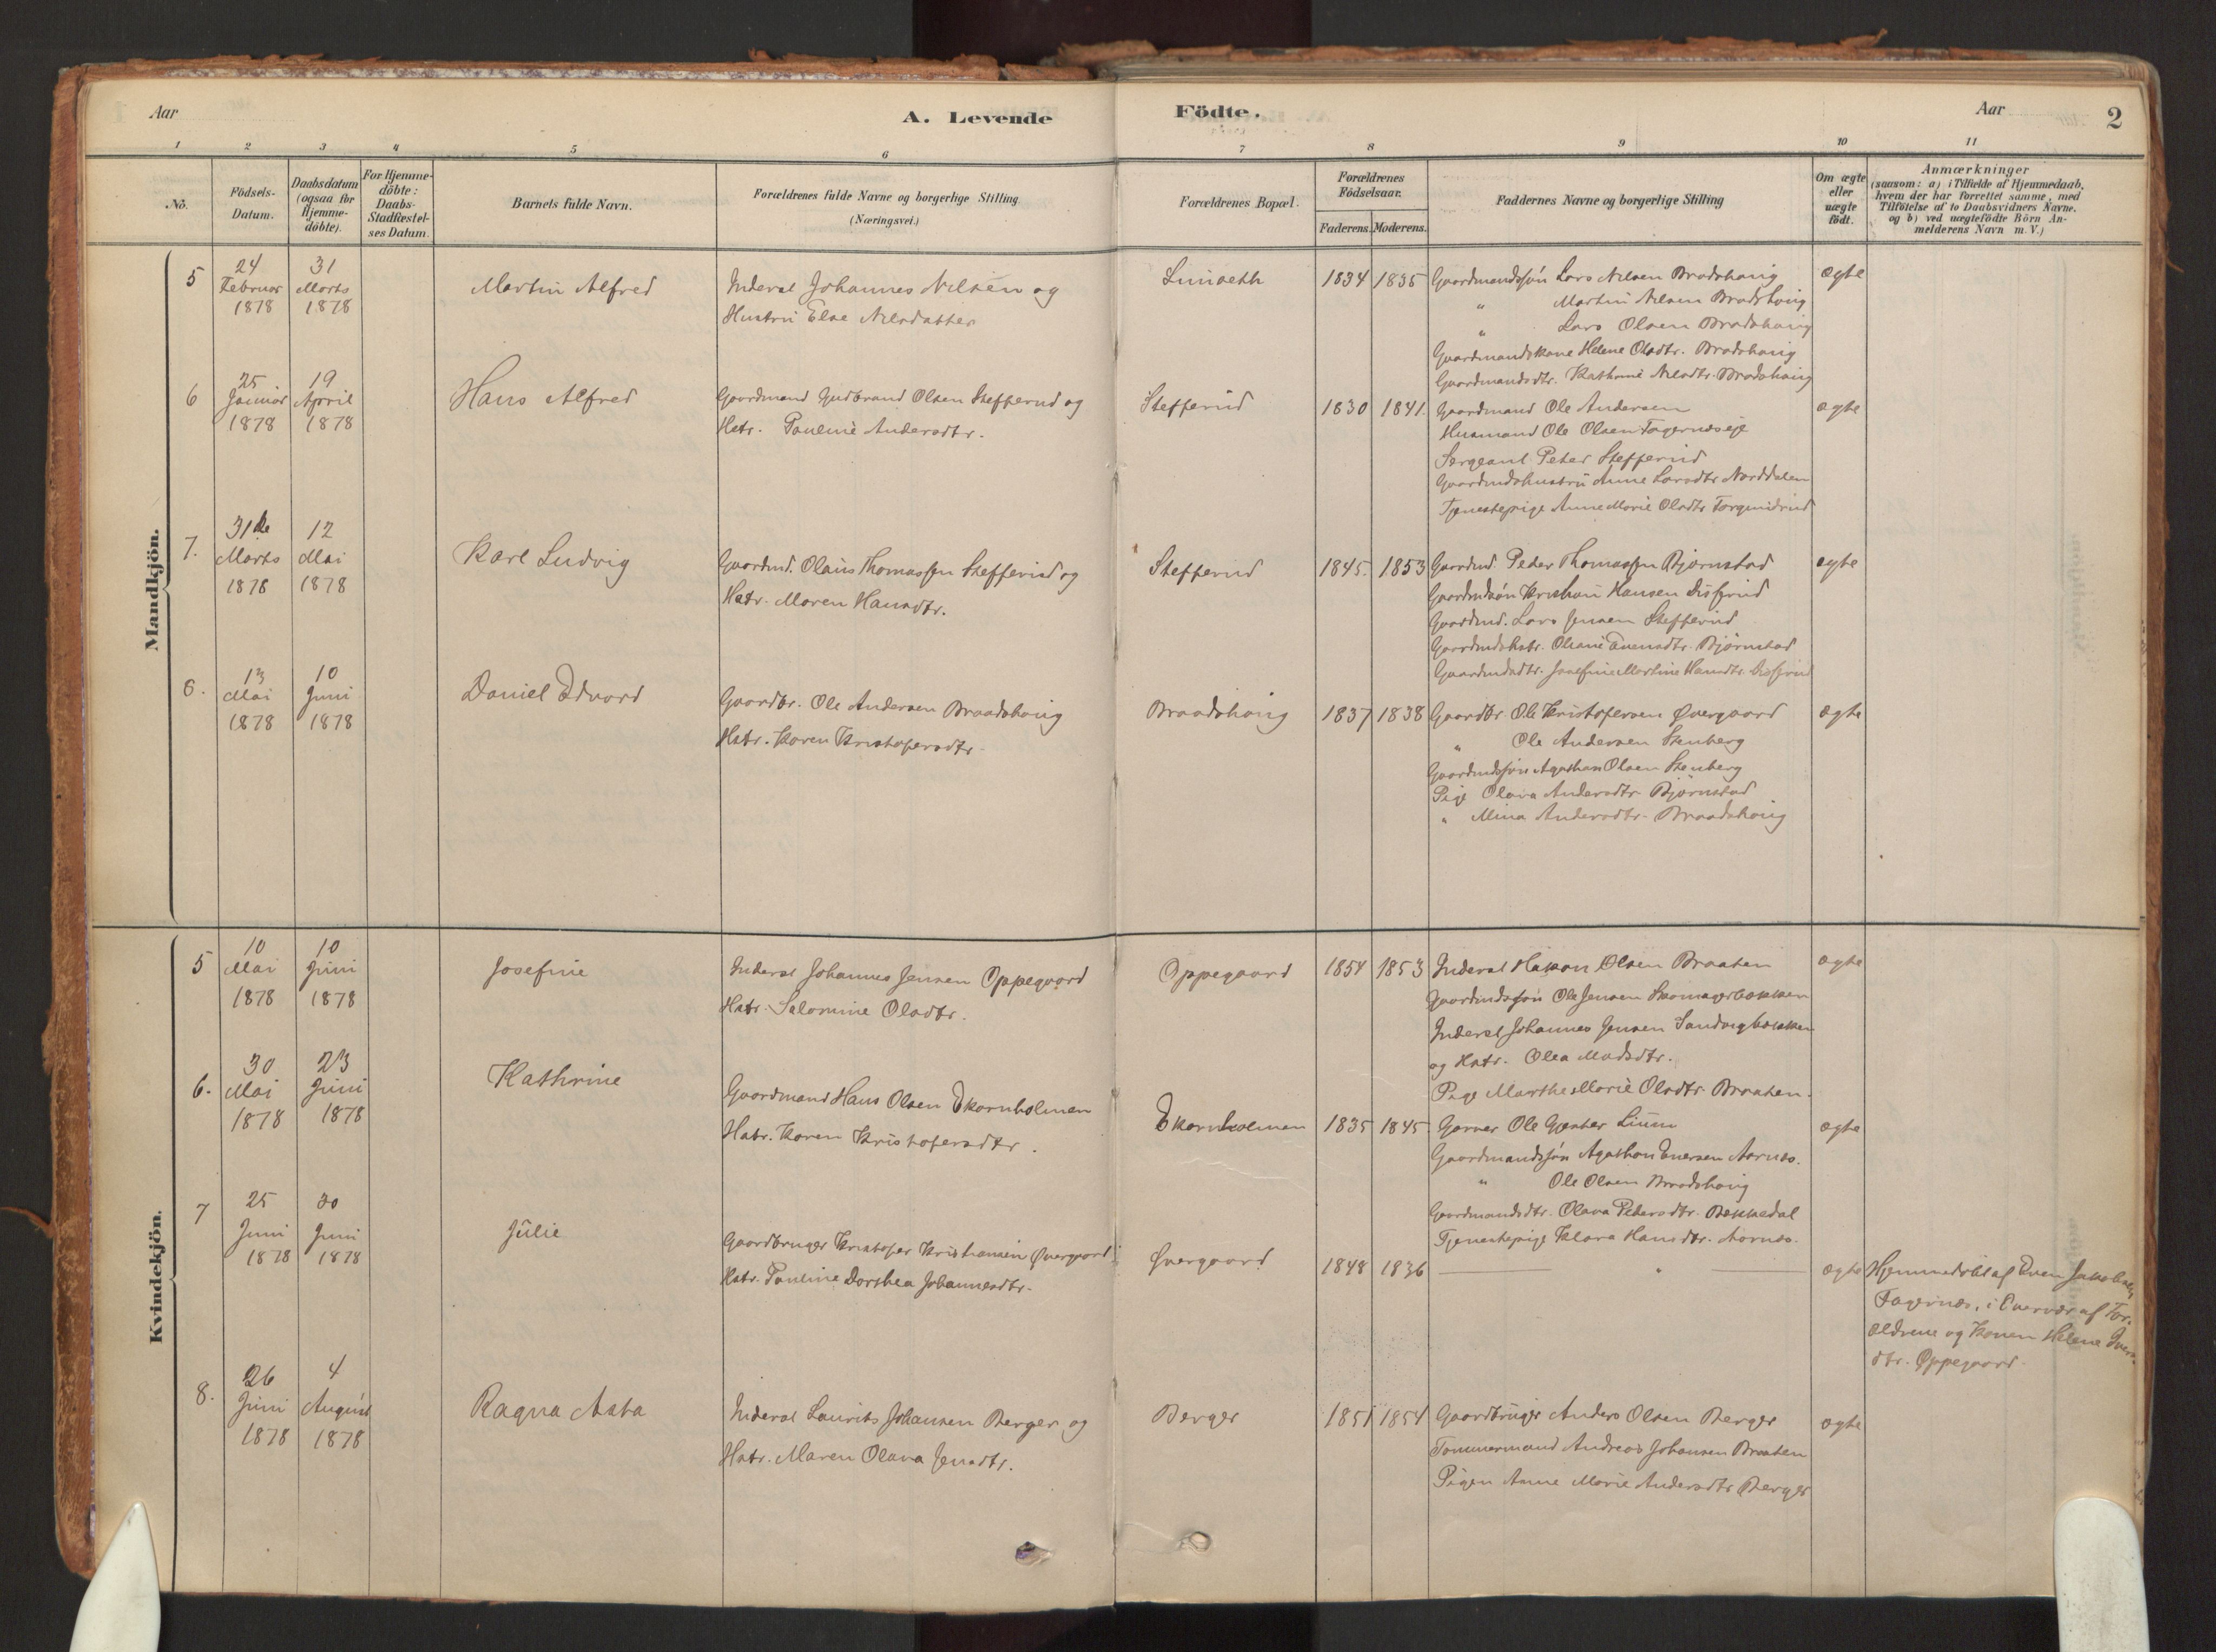 Aar
A. Levende
Födte.
Aar
2
1
2
3
4
5
6
7
8
9
10
11
No.
Födsels-
Datum.
Daabsdatum
(ogsaa for
Hjemme-
döbte).
For Hjemme-
döbte:
Daabs-
Stadfæstel-
ses Datum.
Barnets fulde Navn.
Forældrenes fulde Navne og borgerlige Stilling
(Næringsvei.)
Forældrenes Bopæl.
Forældrenes
Födselsaar.
Faderens.
Moderens.
Faddernes Navne og borgerlige Stilling
Om ægte
eller
uægte
födt.
Anmærkninger
(saasom: a) i Tilfælde af Hjemmedaab,
hvem der har forrettet samme, med
Tilföielse af to Daabsvidners Navne.
og b) ved uægtefödte Börn An-
melderens Navn m. V.)
Mandkjön.
5
24
Februar
1878
31
Marts
1878
Martin Alfred
Inderst Johannes Nilsen og
Hustru Else Nilsdatter
1834
1835
Gaardmandssøn Lars Nilsen Bradshaug
" Martin Nilsen Bradshaug
" Lars Olsen Bradshaug
Gaardmandskone Helene Olsdtr. Bradshaug
Gaardmandsdtr. Kathrine Nilsdtr. Bradshaug
ægte
6
25
Januar
1878
19
April
1878
Hans Alfred
Gaardmand Gudbrand Olsen Stefferud og
Hstr. Pauline Andersdtr.
Stefferud
1830
1841.
Gaardmand Ole Andersen
Husmand Ole Olsen Fagernæseje
Sergeant Peter Stefferud
Gaardmdshustru Anne Larsdtr Norddalen
Tjenestepige Anne Marie Olsdtr
ægte
7.
31te
Marts
1878
12
Mai
1878
Karl Ludvig
Gaardmd. Olaus Thomassen Stefferud og
Hstr. Maren Hansdtr.
Stefferud
1845.
1853
Gaardmd. Peder Thomassen Bjørnstad
Gaardmdssøn Kristian Hansen
Gaardmd. Lars Jensen Stefferud
Gaardmdshstr. Oliane Evensdtr. Bjørnstad
Gaardmdsdtr. Josefine Martine Hansdtr.
ægte
8.
13
Mai
1878
10
Juni
1878
Daniel Edvard
Gaardbr. Ole Andersen Braadshaug
Hstr. Karen Kristofersdtr.
Braadshaug
1837
1838
Gaardbr. Ole Kristofersen Øvergaard
" Ole Andersen Stenberg
Gaardmdssøn Agathon Olsen Stenberg
Pige Olava Andersdtr. Bjørnstad
" Mina Andersdtr. Braadshaug
ægte
Kvindekjön.
5
10
Mai
1878
10
Juni
1878
Josefine
Inderst Johannes Jensen Oppegaard
Hstr. Salomine Olsdtr.
Oppegaard
1854
1853
Inderst Hakon Olsen Braaten
Gaardmdssøn Ole Jensen Skomagerbakken
Inderst Johannes Jensen Sandvigbakken
og Hstr. Olea Madsdtr.
Pige Marthe Marie Olsdtr. Braaten.
ægte
6.
30
Mai
1878
23
Juni
1878
Kathrine
Gaardmand Hans Olsen Ekornholmen
Hstr. Karen Kristofersdtr.
Ekornholmen
1835
1845
Garver Ole Lium
Gaardmandssøn Agathon Evensen Aarnæs.
" Ole Olsen Braadshaug
Gaardmandsdtr. Olava Pedersdtr. Bækkedal
Tjenestepige Klara Hansdtr. Aarnæs.
ægte
7
25
Juni
1878
30
Juni
1878
Julie
Gaardbruger Kristofer Kristiansen Øvergaard
Hstr. Pauline Dorthea Johannesdtr.
Øvergaard
1848
1836
"
ægte
Hjemmedøbt af Even Jakobsen
Fagernæs, i Overvær af For-
ældrene og Konen Helene
dtr. Oppegaard.
8.
26
Juni
1878
4
August
1878
Ragna Asta
Inderst Laurits Johansen Berger og
Hstr. Maren Olava Jensdtr.
Berger
1851
1854
Gaardbruger Anders Olsen Berger
Tømmermand Andreas Johansen Braaten
Pigen Anne Marie Andersdtr Berger
ægte